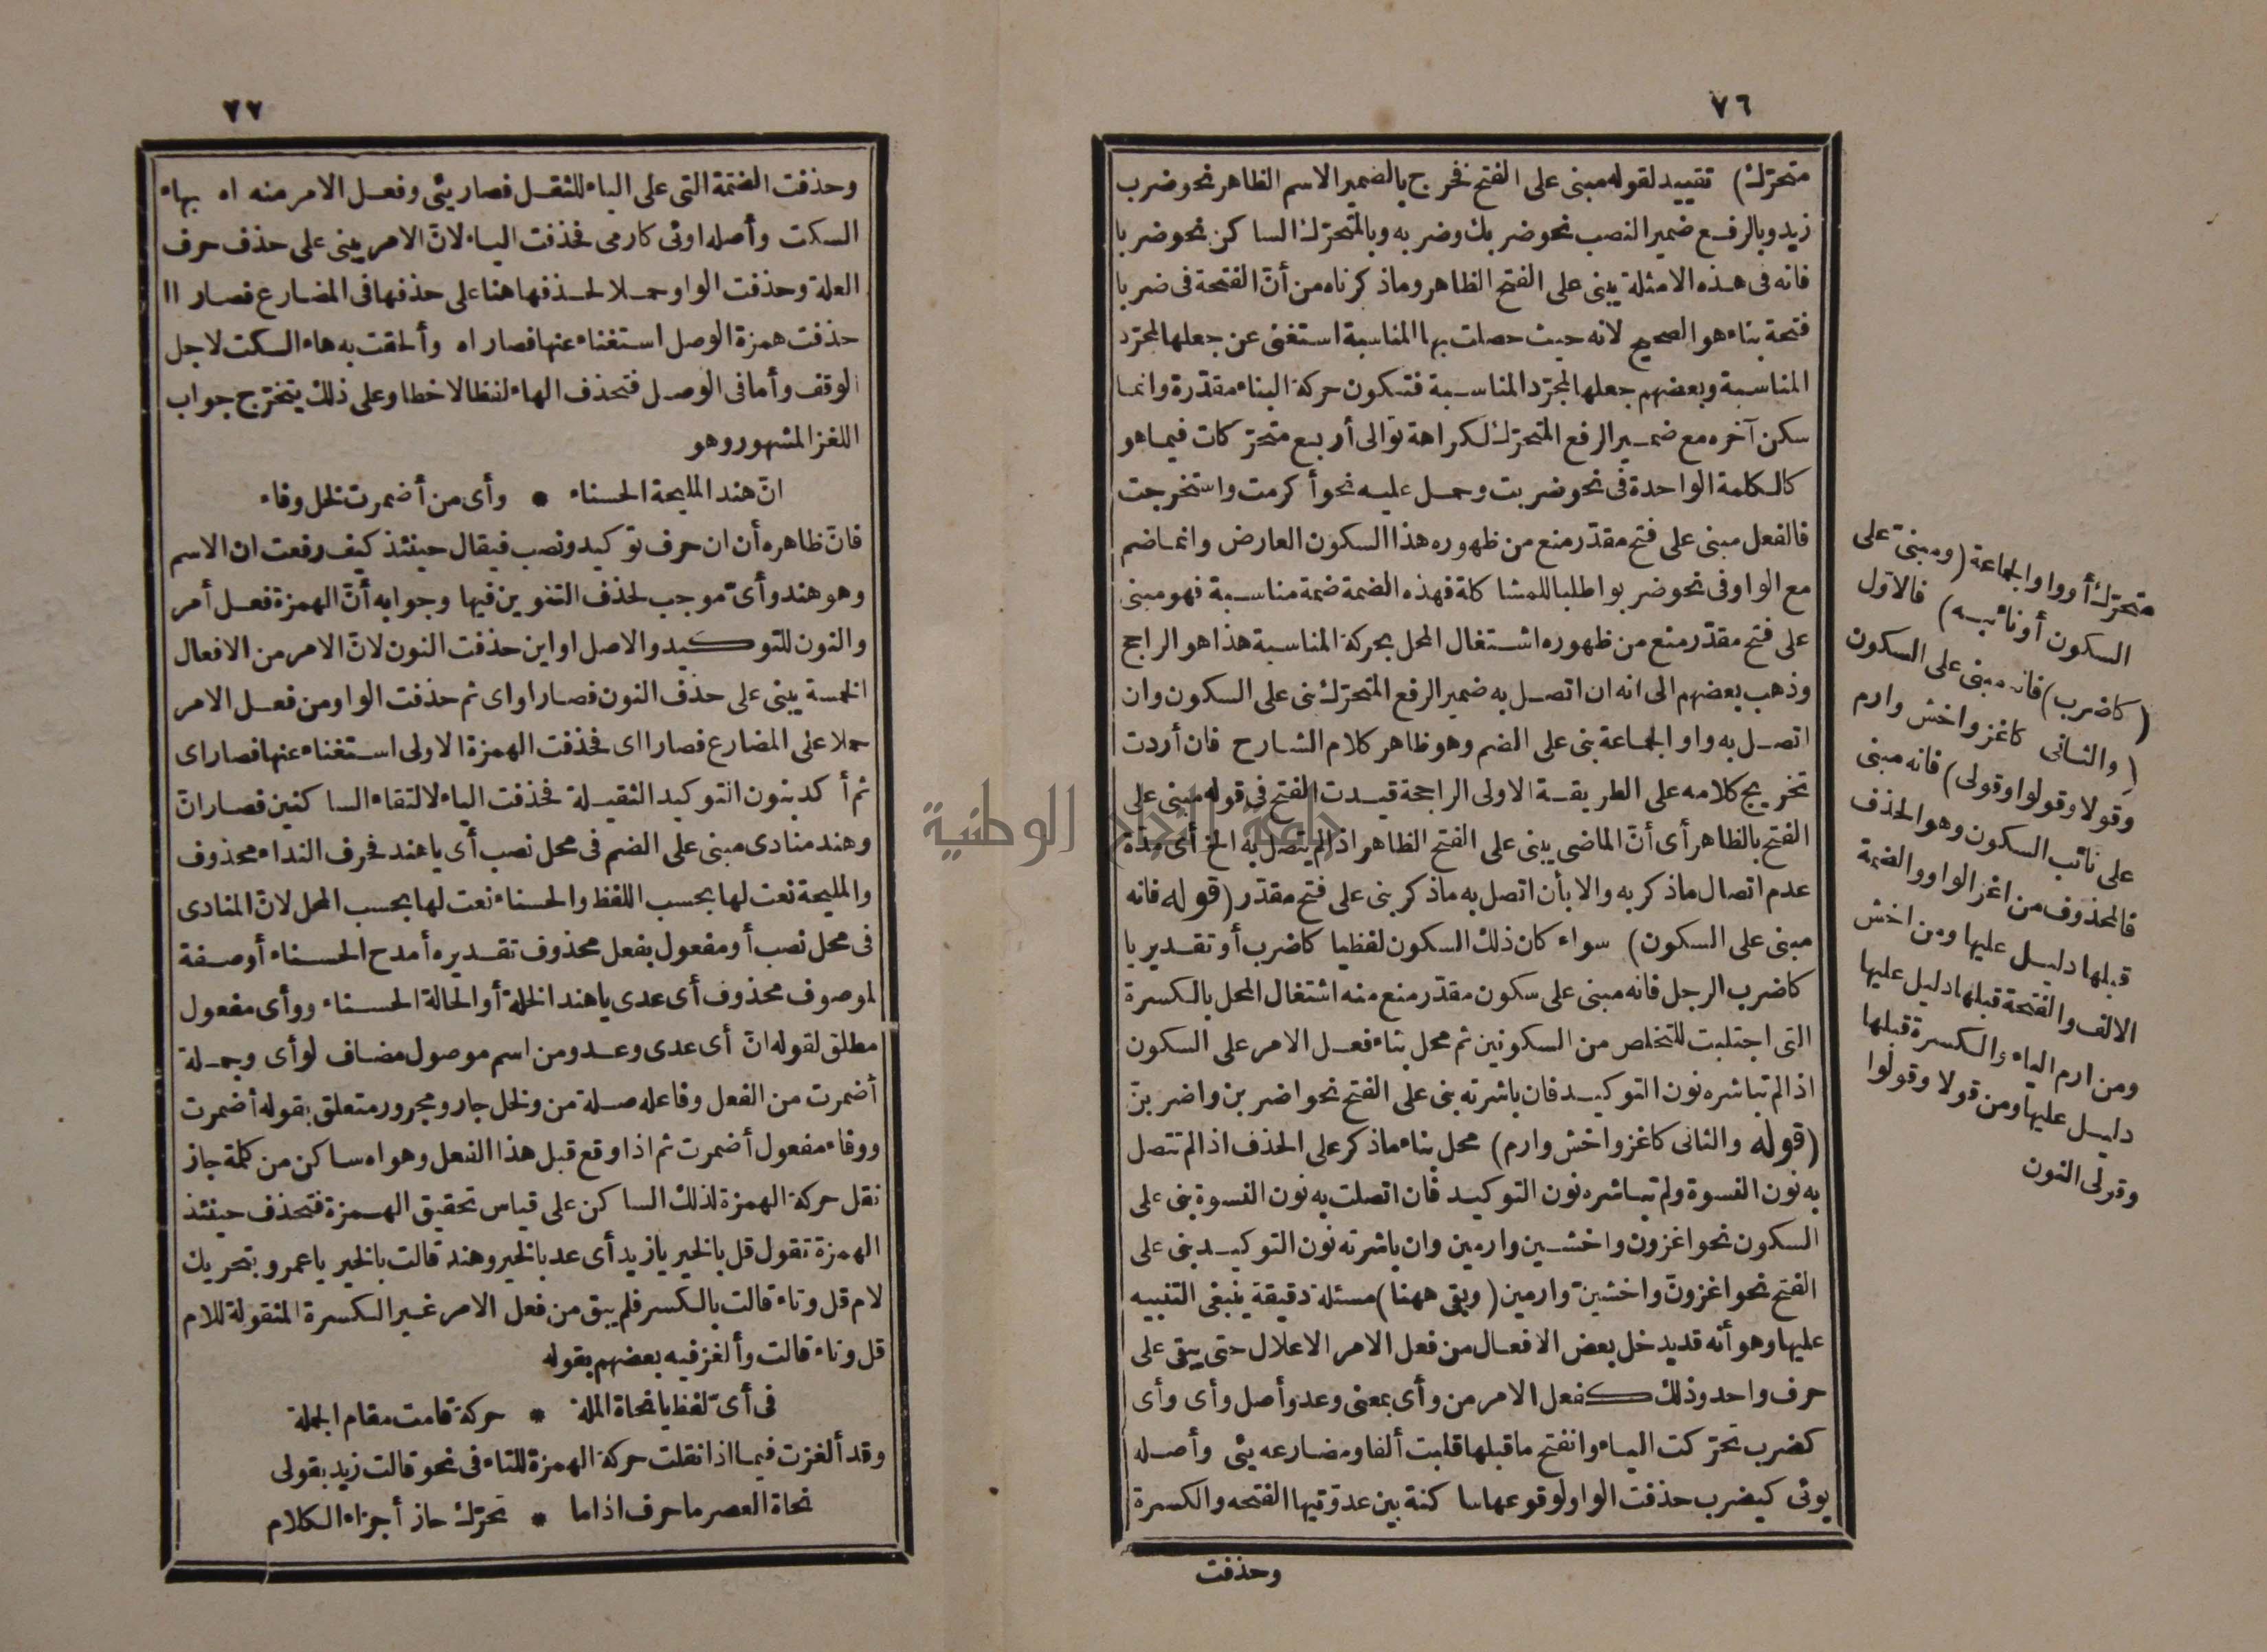 ٧٦
متحرّك) تقييد لقوله مبنى على الفتح فخرج بالضمير الاسم الظاهر نحو ضرب
زيد وبالرفع ضمير النصب نحو ضربك وضربه وبالمتحرّك الساكن نحو ضربا
فانه فى هذه الامثلة يبنى على الفتح الظاهر وماذكرناه من أنّ الفتحة فى ضربا
فتحة بناء هو الصحيح لانه حيث حصلت بها المناسبة استغنى عن جعلها لمجرّد
المناسبة وبعضهم جعلها لمجرّد المناسبة فتكون حركة البناء مقدّرة وانما
سكن آخره مع ضمير الرفع المتحرّك لكراهة توالى أربع متحرّكات فيما هو
كالكلمة الواحدة فى نحو ضربت وحمل عليه نحو أكرمت واستخرجت
فالفعل مبنى على فتح مقدّر منع من ظهوره هذا السكون العارض وانما ضم
مع الواو فى نحو ضربوا طلبا للمشاكلة فهذه الضمة ضمة مناسبة فهو مبنى
على فتح مقدّر منع من ظهوره اشتغال المحل بحركة المناسبة هذا هو الراجح
وذهب بعضهم الى انه ان اتصل به ضمير الرفع المتحرّك بنى على السكون وان
اتصل به واو الجماعة بنى على الضم وهو ظاهر كلام الشارح فان أردت
تخريج كلامه على الطريقة الاولى الراجحة قيدت الفتح فى قوله مبنى على
الفتح بالظاهر أى أنّ الماضى يبنى على الفتح الظاهر اذا لم يتصل به الخ أى مدّة
عدم اتصال ماذكر به والا بأن اتصل به ماذكر بنى على فتح مقدّر (قوله فانه
مبنى على السكون) سواء كان ذلك السكون لفظيا كاضرب أو تقديريا
كاضرب الرجل فانه مبنى على سكون مقدّر منع منه اشتغال المحل بالكسرة
التى اجتلبت للتخلص من السكونين ثم محل بناء فعل الامر على السكون
اذا لم تباشره نون التوكيد فان باشرته بنى على الفتح نحو اضربن واضربنّ
(قوله والثانى كاغز واخش وارم) محل بناء ماذكر على الحذف اذا لم تتصل
به نون النسوة ولم تباشره نون التوكيد فان اتصلت به نون النسوة بنى على
السكون نحو اغزون واخشين وارمين وان باشرته نون التوكيد بنى على
الفتح نحو اغزونّ واخشينّ وارمين (وبقى ههنا) مسئلة دقيقة ينبغى التنبيه
عليها وهو أنه قد يدخل بعض الافعال من فعل الامر الاعلال حتى يبقى على
حرف واحد وذلك كفعل الامر من وأى بمعنى وعد وأصل وأى وأى
كضرب تحرّكت الياء وانفتح ماقبلها قلبت ألفا ومضارعه يئى وأصله
يوئى كيضرب حذفت الواو لوقوعها ساكنة بين عدوّتيها الفتحه والكسرة
وحذفت
متحرّك أو واو الجماعة (ومبنىّ على
السكون أو نائبه) فالاوّل
(كاضرب) فانه مبنى على السكون
(والثانى كاغز واخش وارم
وقولا وقولوا وقولى) فانه مبنى
على نائب السكون وهو الحذف
فالمحذوف من اغز الواو والضمة
قبلها دليل عليها ومن اخش
الالف والفتحة قبلها دليل عليها
ومن ارم الياء والكسرة قبلها
دليل عليها ومن قولا وقولوا
وقولى النون
٧٧
وحذفت الضمّة التى على الياء للثقل فصار يئى وفعل الامر منه اه بهاء
السكت وأصله اوئى كارمى فحذفت الياء لانّ الامر يبنى على حذف حرف
العلة وحذفت الواو حملا لحذفها هنا على حذفها فى المضارع فصار اا
حذفت همزة الوصل استغناء عنها فصار اه وألحقت به هاء السكت لاجل
الوقف وأما فى الوصل فتحذف الهاء لفظا لا خطا وعلى ذلك يتخرّج جواب
اللغز المشهور وهو
انّ هند المليحة الحسناء * وأى من أضمرت لخل وفاء
فانّ ظاهره أن ان حرف توكيد ونصب فيقال حينئذ كيف رفعت ان الاسم
وهو هند وأىّ موجب لحذف التنوين فيها وجوابه أنّ الهمزة فعل أمر
والنون للتوكيد والاصل اواين حذفت النون لانّ الامر من الافعال
الخمسة يبنى على حذف النون فصار اواى ثم حذفت الواو من فعل الامر
حملا على المضارع فصار ااى فحذفت الهمزة الاولى استغناء عنها فصار اى
ثم أكد بنون التوكيد الثقيلة فحذفت الياء لالتقاء الساكنين فصار انّ
وهند منادى مبنى على الضم فى محل نصب أى ياهند فحرف النداء محذوف
والمليحة نعت لها بحسب اللفظ والحسناء نعت لها بحسب المحل لانّ المنادى
فى محل نصب أو مفعول بفعل محذوف تقديره أمدح الحسناء أو صفة
لموصوف محذوف أى عدى ياهند الخلة أو الحالة الحسناء ووأى مفعول
مطلق لقوله انّ أى عدى وعد ومن اسم موصول مضاف لوأى وجملة
أضمرت من الفعل وفاعله صلة من ولخل جار ومجرور متعلق بقوله أضمرت
ووفاء مفعول أضمرت ثم اذا وقع قبل هذا الفعل وهو اه ساكن من كلمة جاز
نقل حركة الهمزة لذلك الساكن على قياس تحقيق الهمزة فتحذف حينئذ
الهمزة تقول قل بالخير يازيد أى عد بالخير وهند قالت بالخير ياعمرو بتحريك
لام قل وتاء قالت بالكسر فلم يبق من فعل الامر غير الكسرة المنقولة للام
قل وتاء قالت وألغز فيه بعضهم بقوله
فى أىّ لفظ يانحاة المله * حركة قامت مقام الجمله
وقد ألغزت فيما اذا نقلت حركة الهمزة للتاء فى نحو قالت زيد بقولى
نحاة العصر ماحرف اذا ما * تحرّك حاز أجزاء الكلام
جامعة النجاح الوطنية